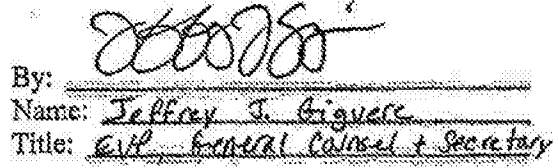 By:
Name: Jeffrey J. Giguere
Title: EVP, General Counsel + Secretary